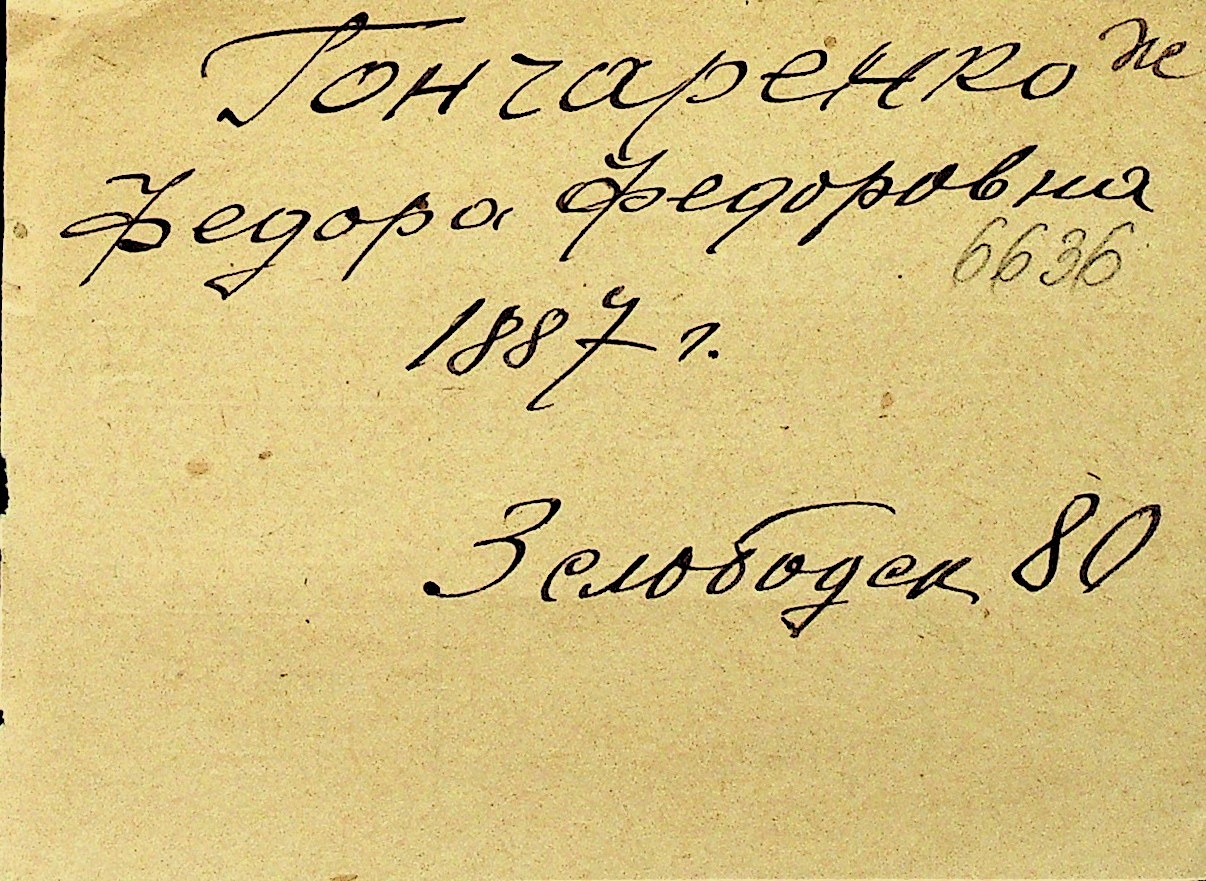 Гончаренко ж
Федора Федоровна
6636
1887 г.
3 слободск 80